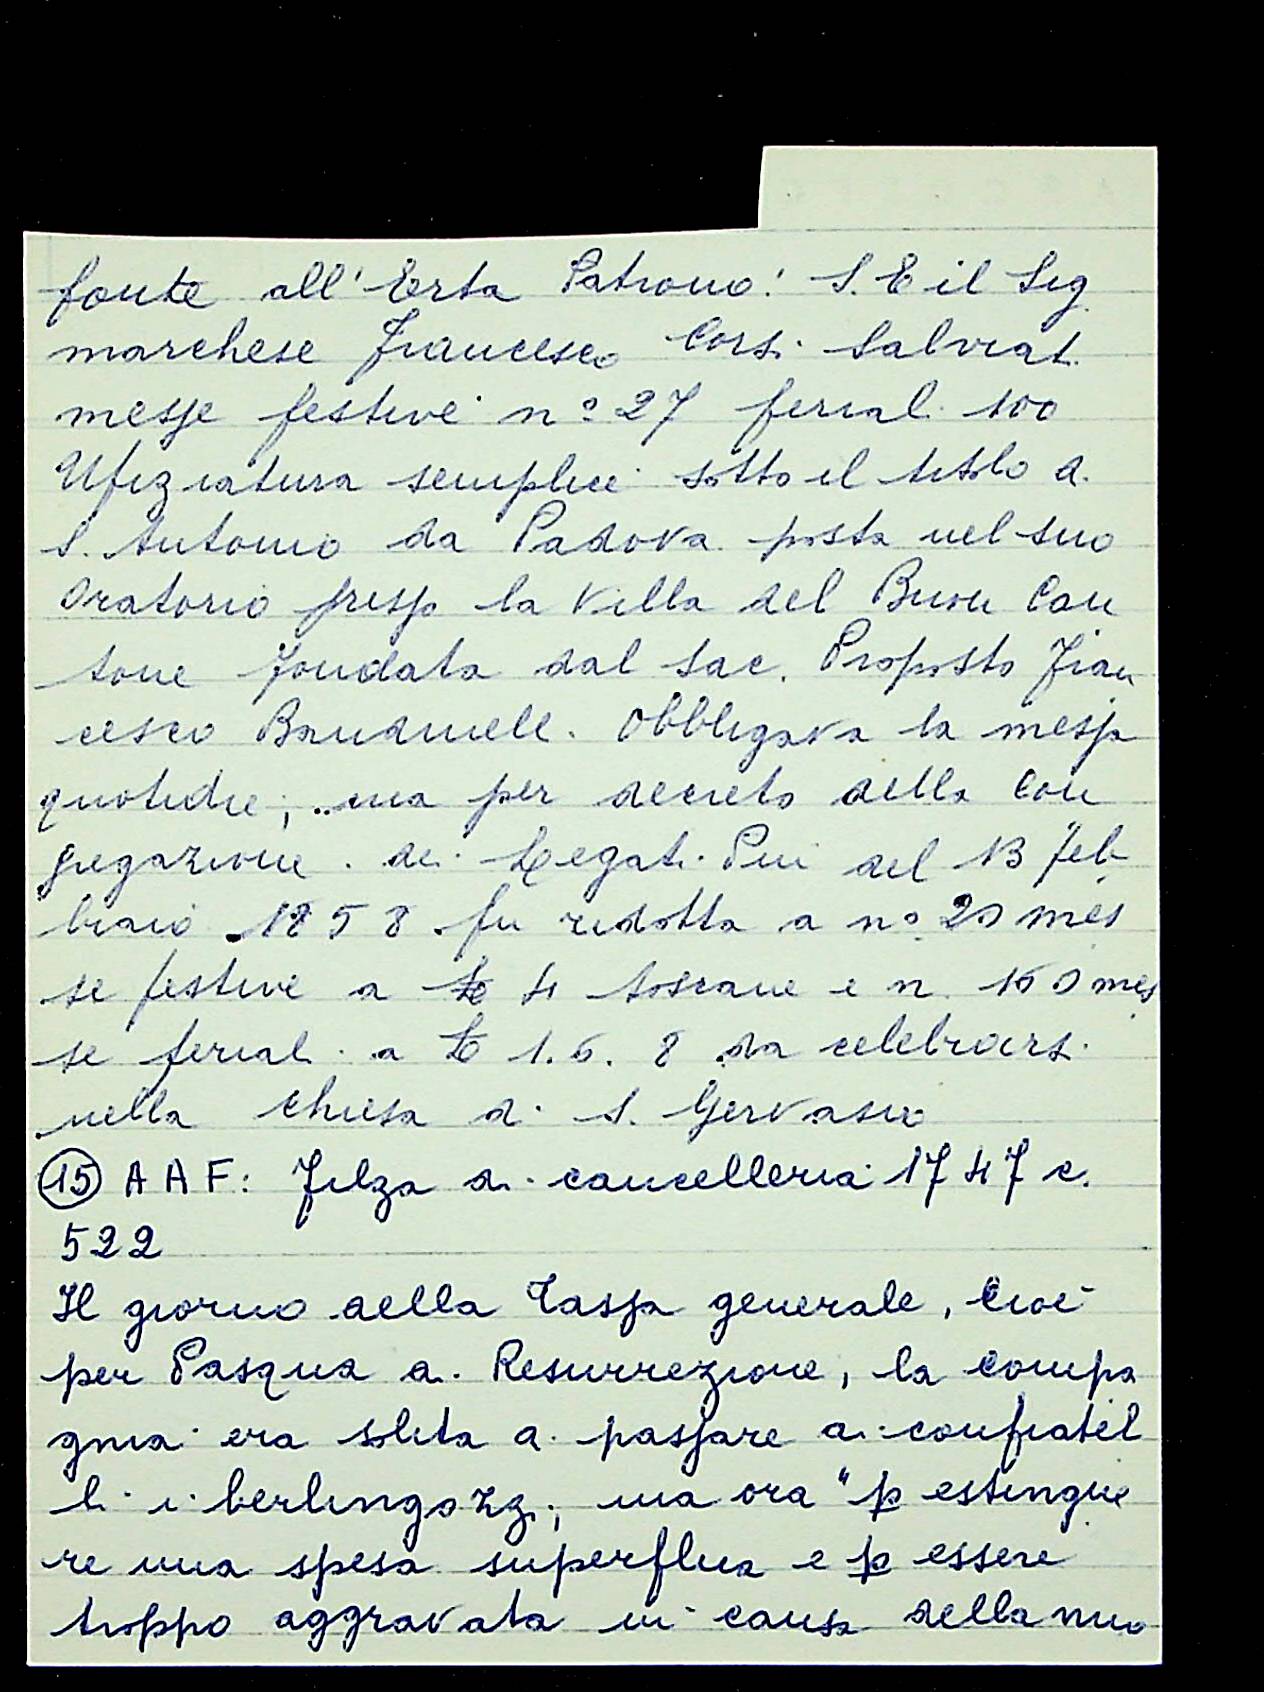 fonte all'Erta Patrono: S. E il Sig
marchese Francesco Corsi Salviati
messe festive n° 27 feriali 100
Ufiziatura semplice sotto il titolo di
S. Antonio da Padova posta nel suo
Oratorio presso la Villa del Buon Can
tone fondata dal sac. Proposto Fran
cesco Bandinelli. Obbligava la messa
quotidie, ma per decreto della Con
gregazione dei Legati Pii del 13 feb
braio 1858 fu ridotta a n° 20 mes
se festive a £ 4 toscane e n. 160 mes
se feriali a £ 1.6.8 da celebrarsi
nella chiesa di S. Gervasio
15 A A F: Filza di cancelleria 1747 c.
522
Il giorno della Tassa generale, cioè
per Pasqua di Resurrezione, la compa
gnia era solita di passare ai confratel
li i berlingozzi; ma ora "p estingue
re una spesa superflua e p essere
troppo aggravata in causa della nuo